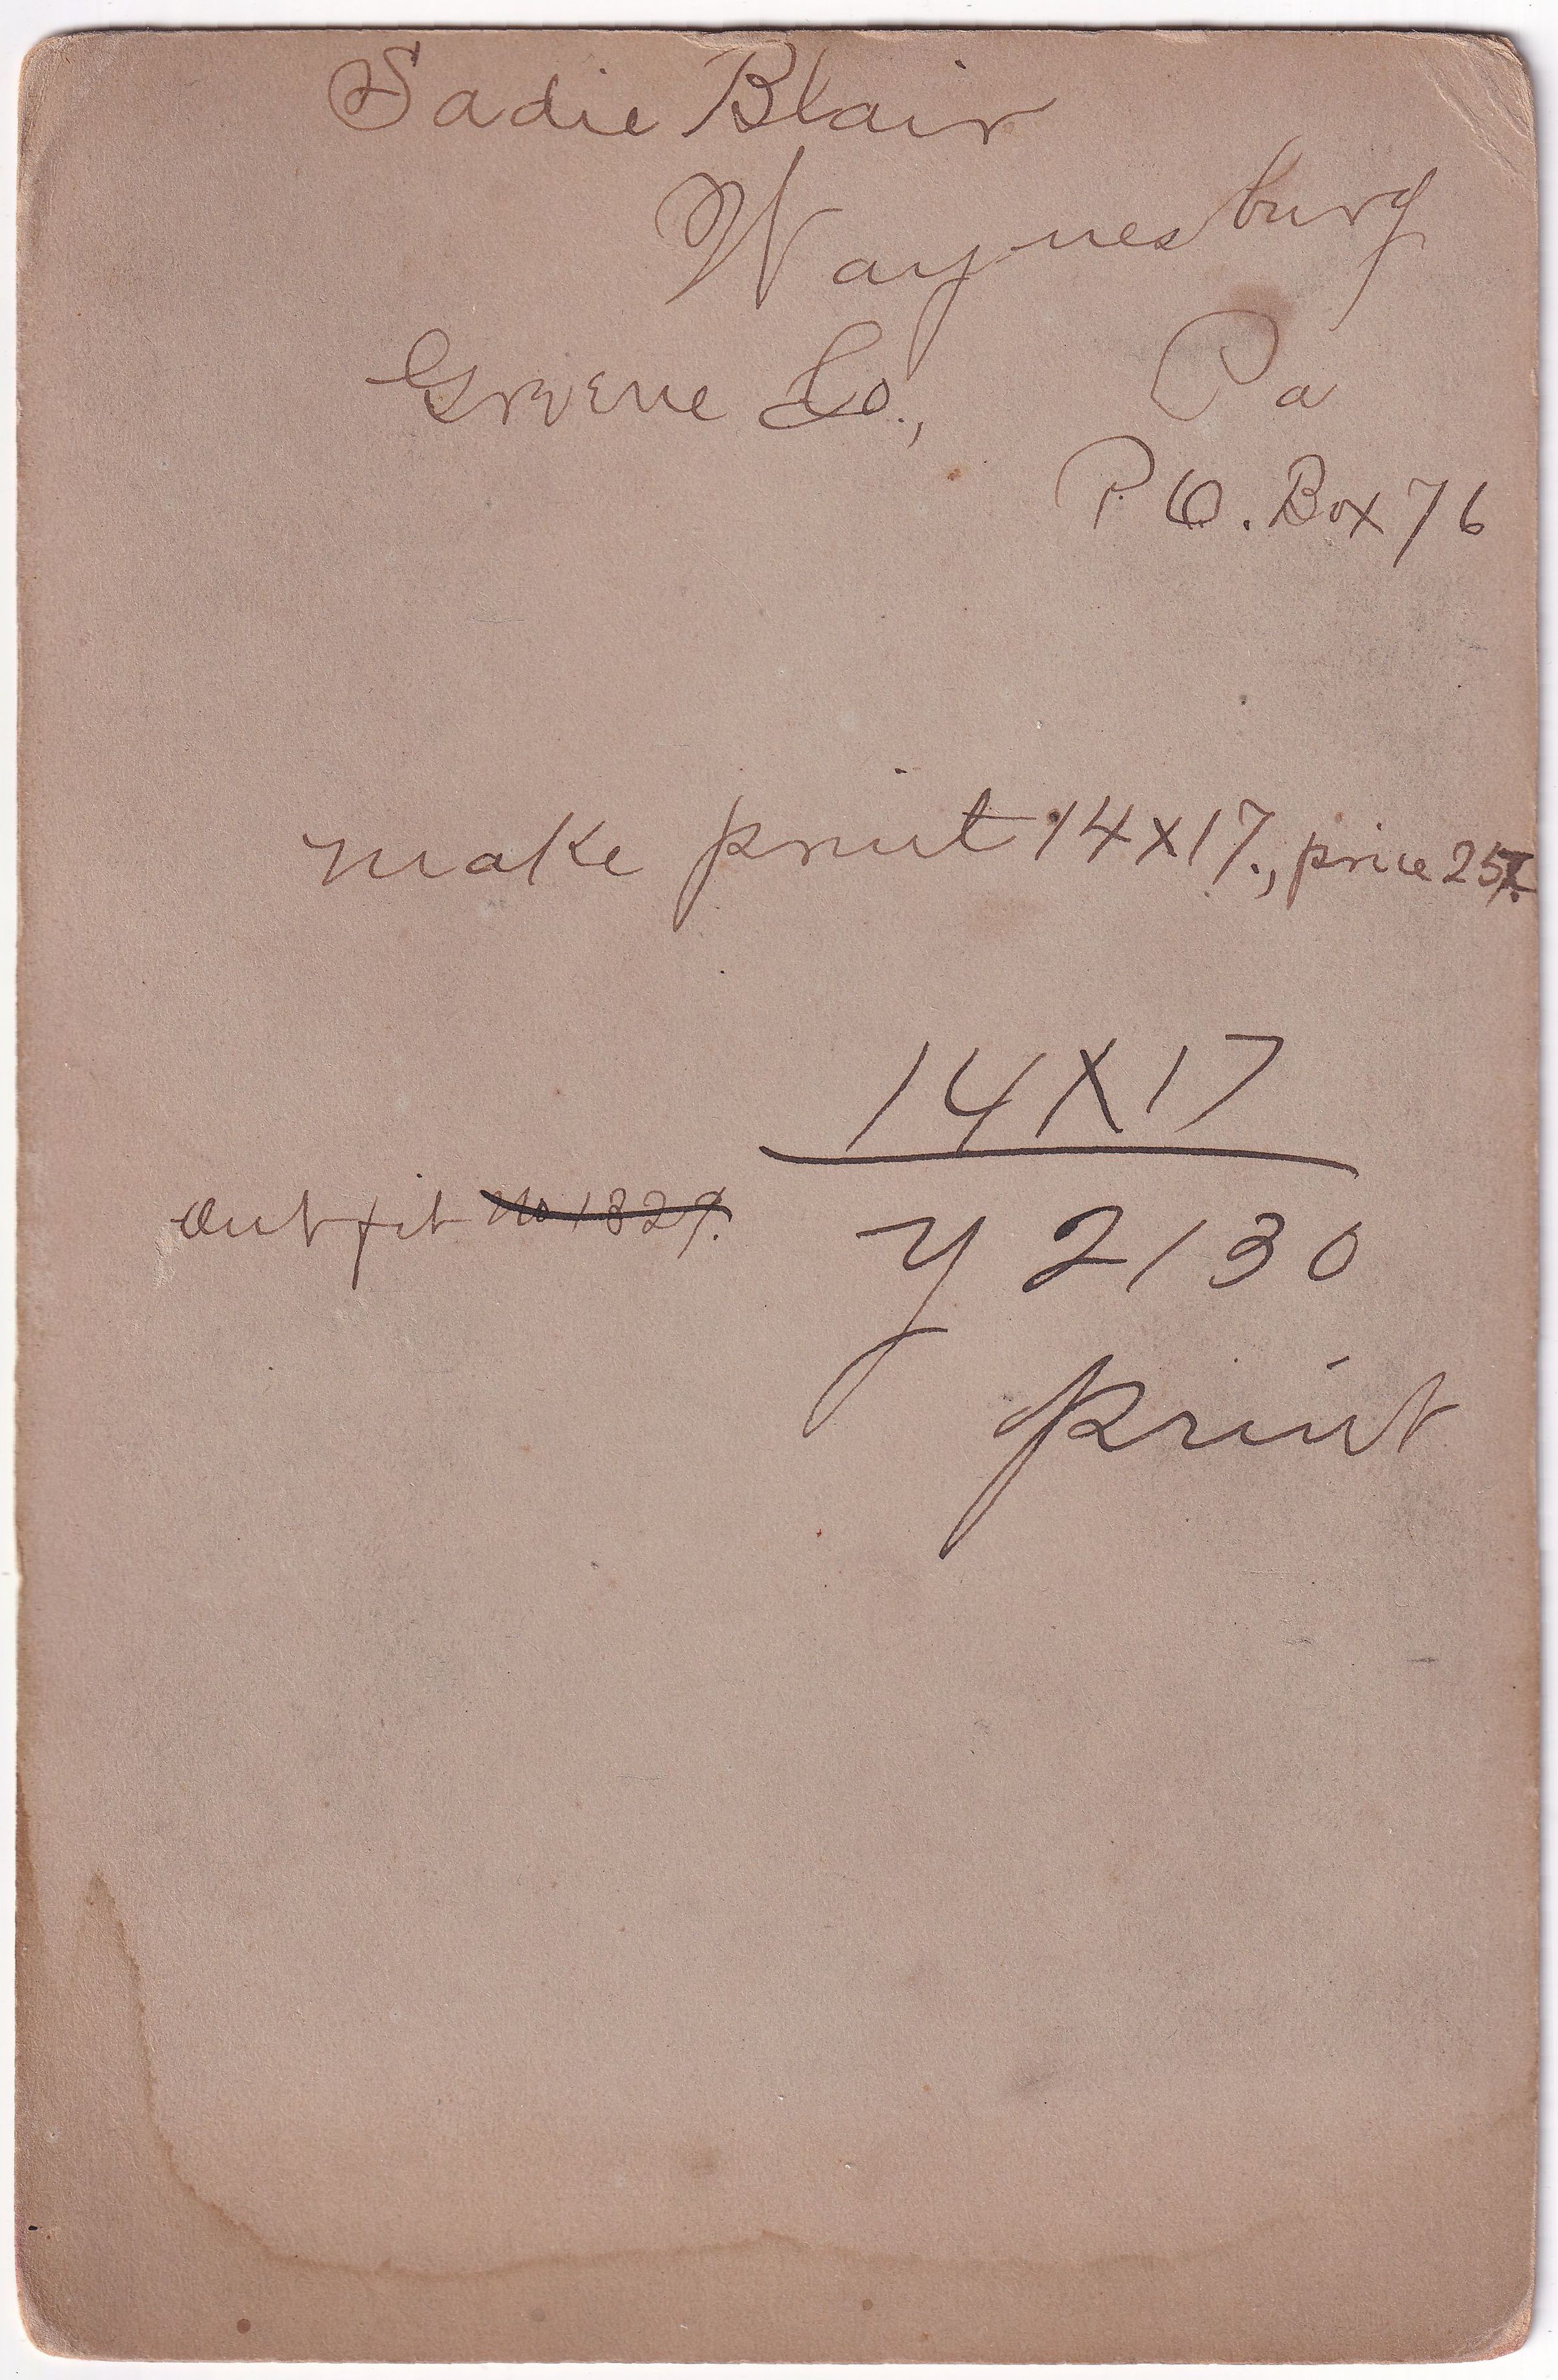 Sadie Blair
Waynesburg
Greene Co., Pa
P.O. Box 76
make print 14x17., price 25
14X17
outfit No 1829.
y 2130
print